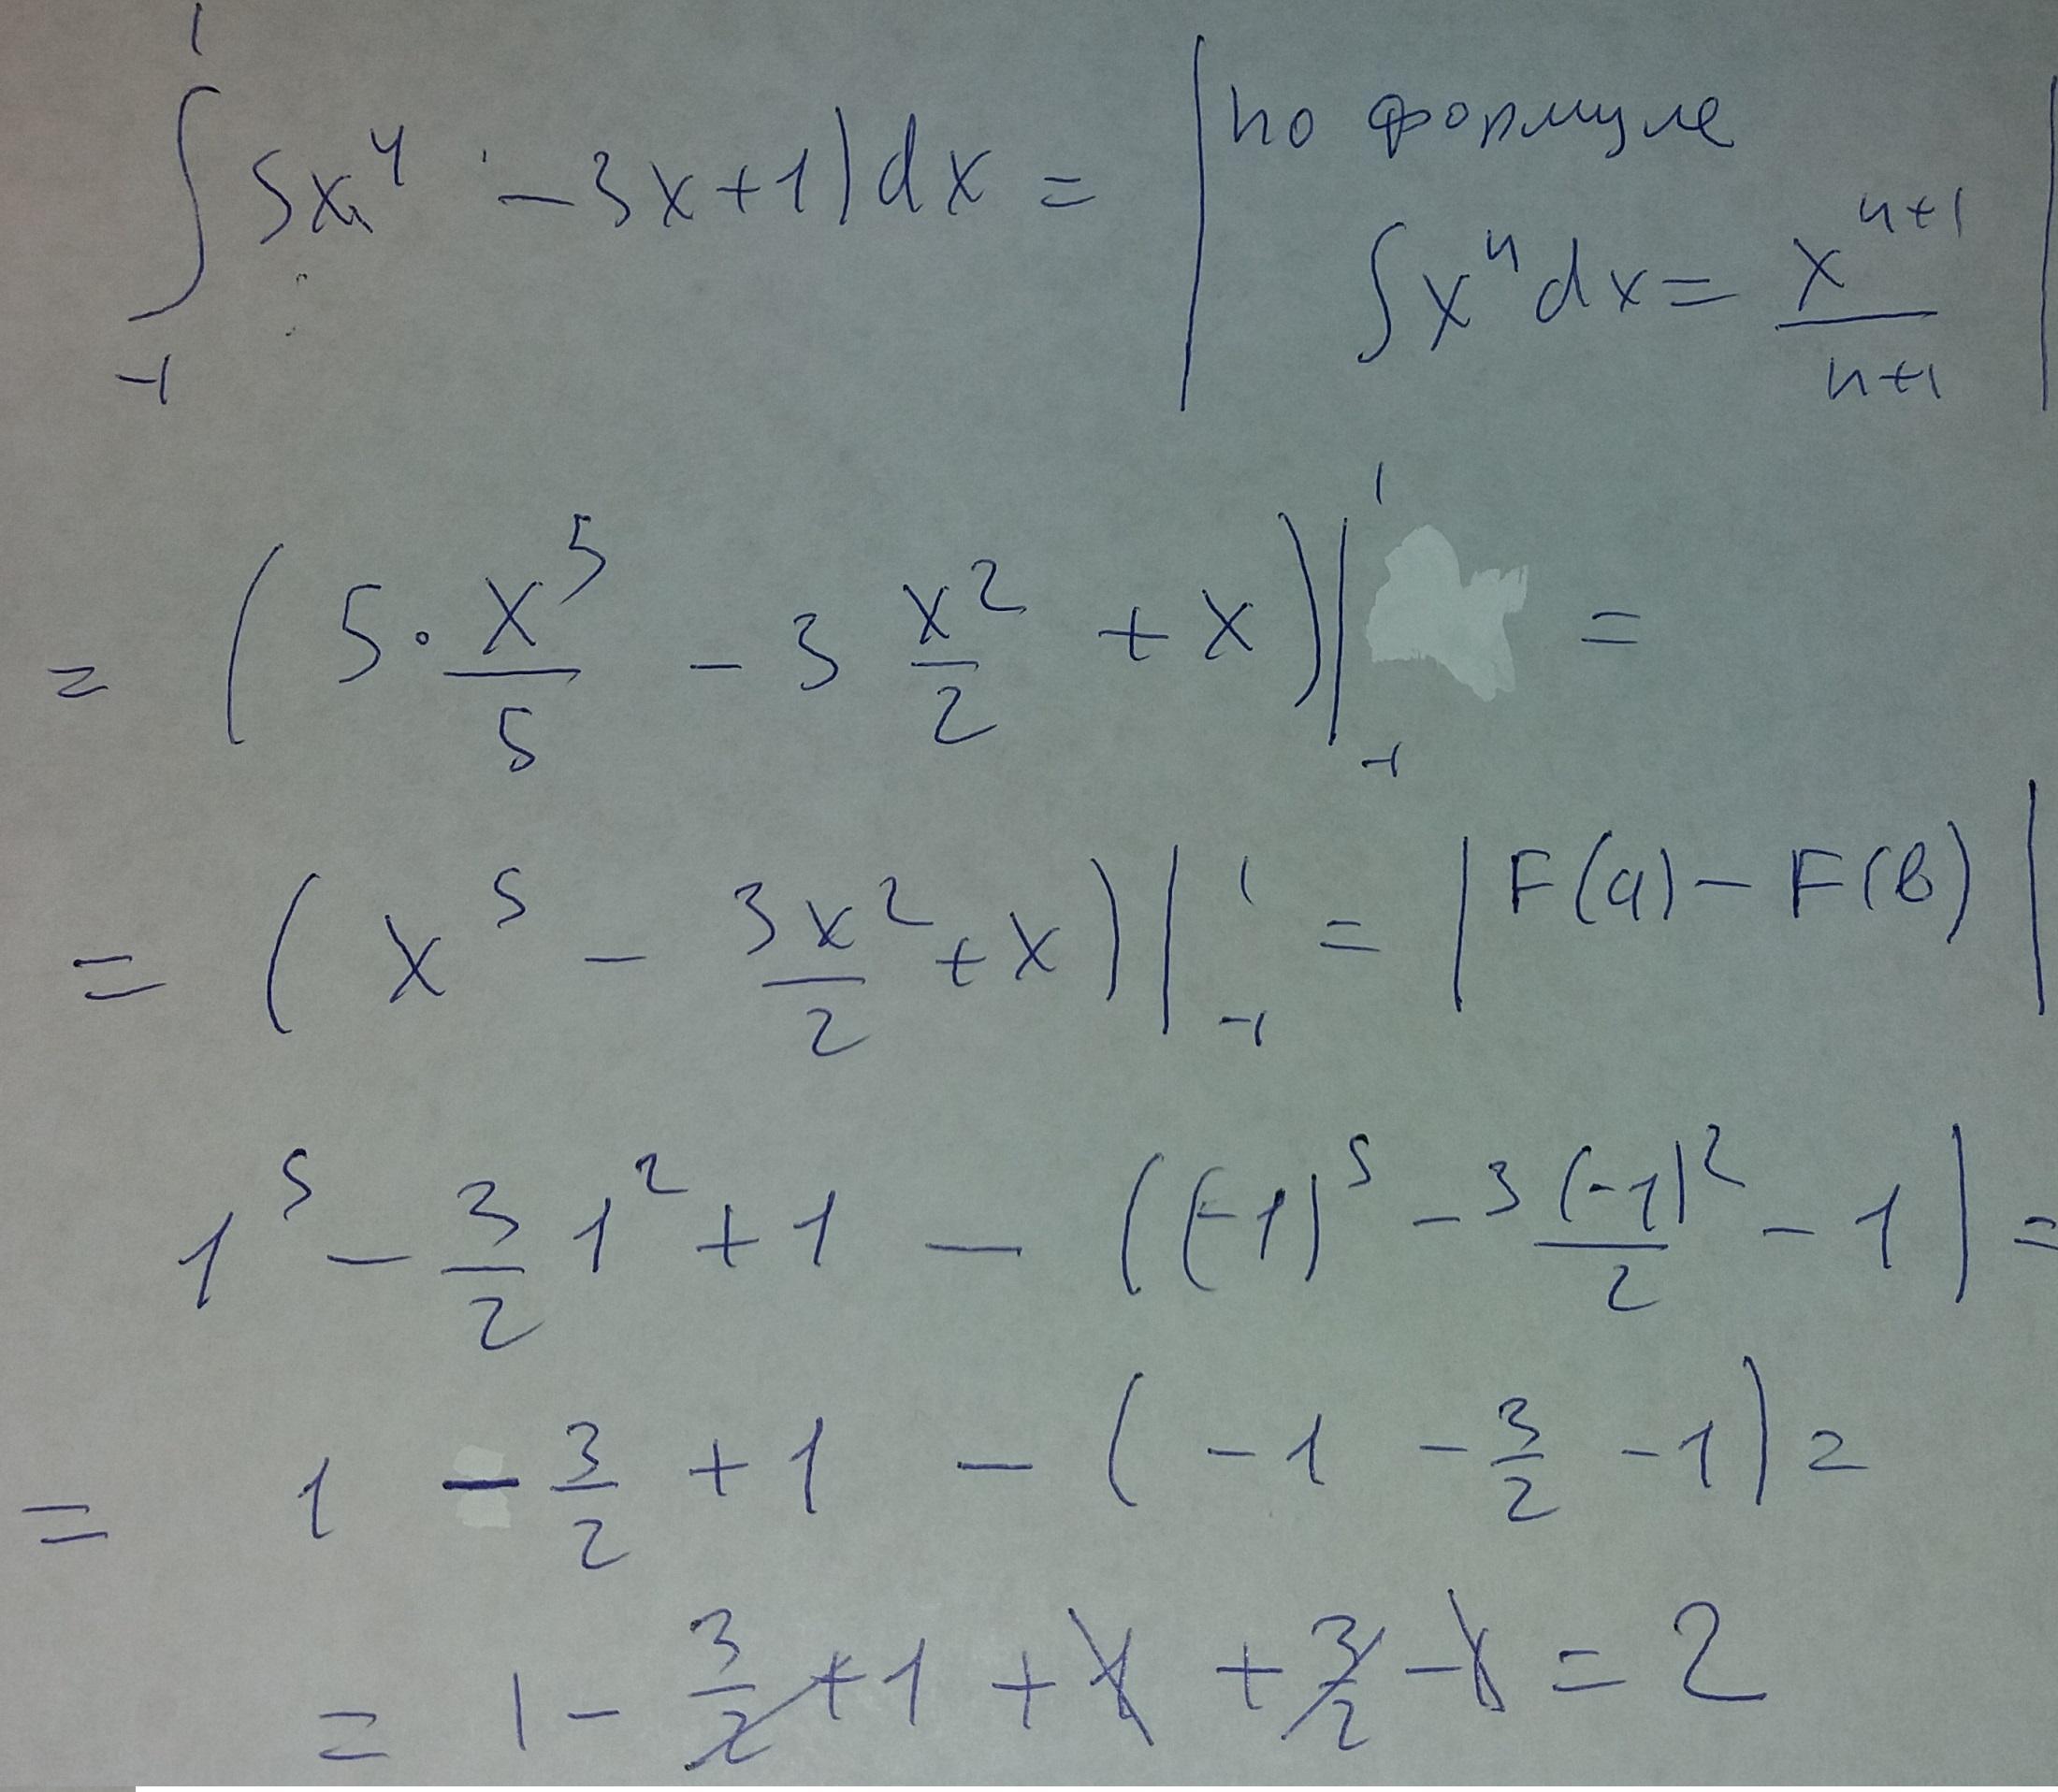 ∫₋₁¹ 5x⁴ - 3x + 1) dx = | по формуле
∫ xⁿ dx = xⁿ⁺¹/(n+1) |
= ( 5 · x⁵/5 - 3 x²/2 + x ) |₋₁¹ =
= ( x⁵ - 3x²/2 + x ) |₋₁¹ = | F(a) - F(b) |
1⁵ - 3/2 1² + 1 - ( (-1)⁵ - 3(-1)²/2 - 1 ) =
= 1 - 3/2 + 1 - ( -1 - 3/2 - 1 ) =
= 1 - 3/2 + 1 + 1 + 3/2 - 1 = 2